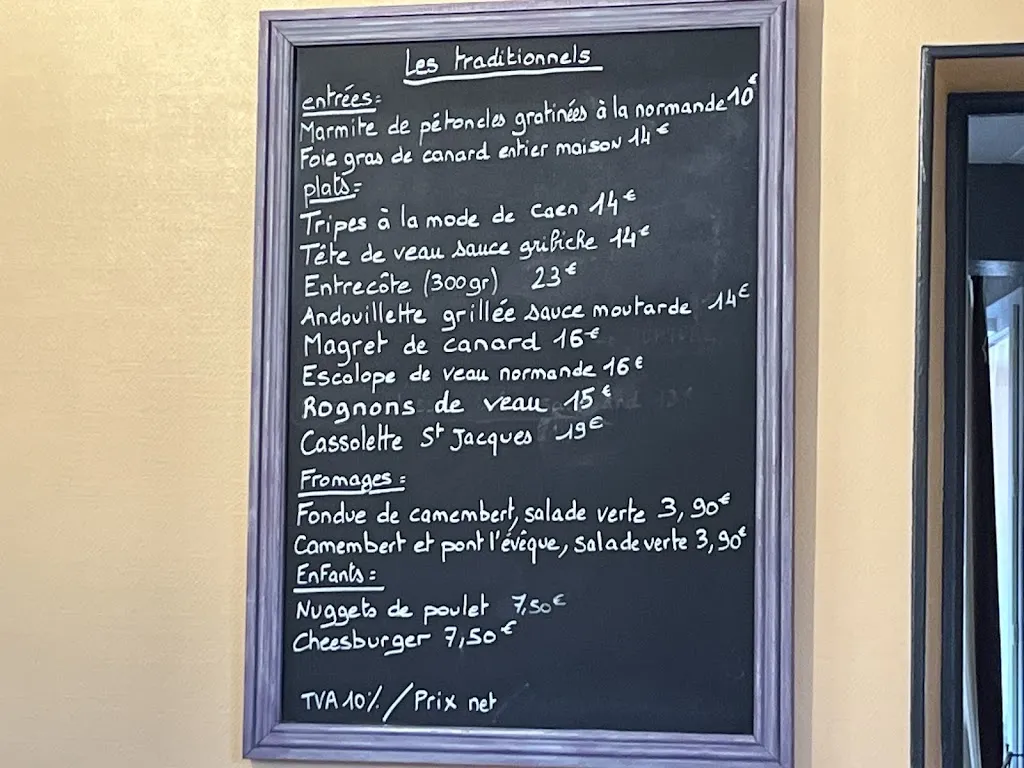 Les traditionnels
entrées:
Marmite de pétoncles gratinées à la normande 10€
Foie gras de canard entier maison 14€
plats:
Tripes à la mode de Caen 14€
Tête de veau sauce gribiche 14€
Entrecôte (300gr) 23€
Andouillette grillée sauce moutarde 14€
Magret de canard 16€
Escalope de veau normande 16€
Rognons de veau 15€
Cassolette St Jacques 19€
Fromages:
Fondue de camembert, salade verte 3,90€
Camembert et pont l'évêque, salade verte 3,90€
Enfants:
Nuggets de poulet 7,50€
Cheesburger 7,50€
TVA 10% / Prix net